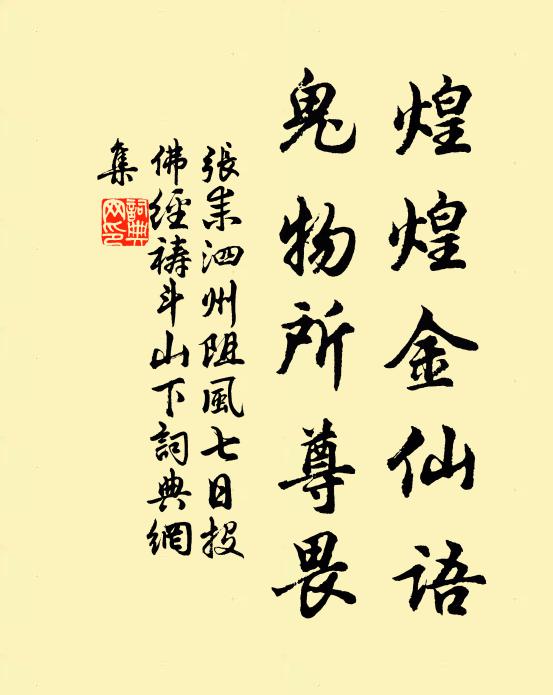 煌煌金仙语
鬼物所尊畏
張耒泗州阻風七日投
佛經禱斗山下詞典網
集
詞典
网印